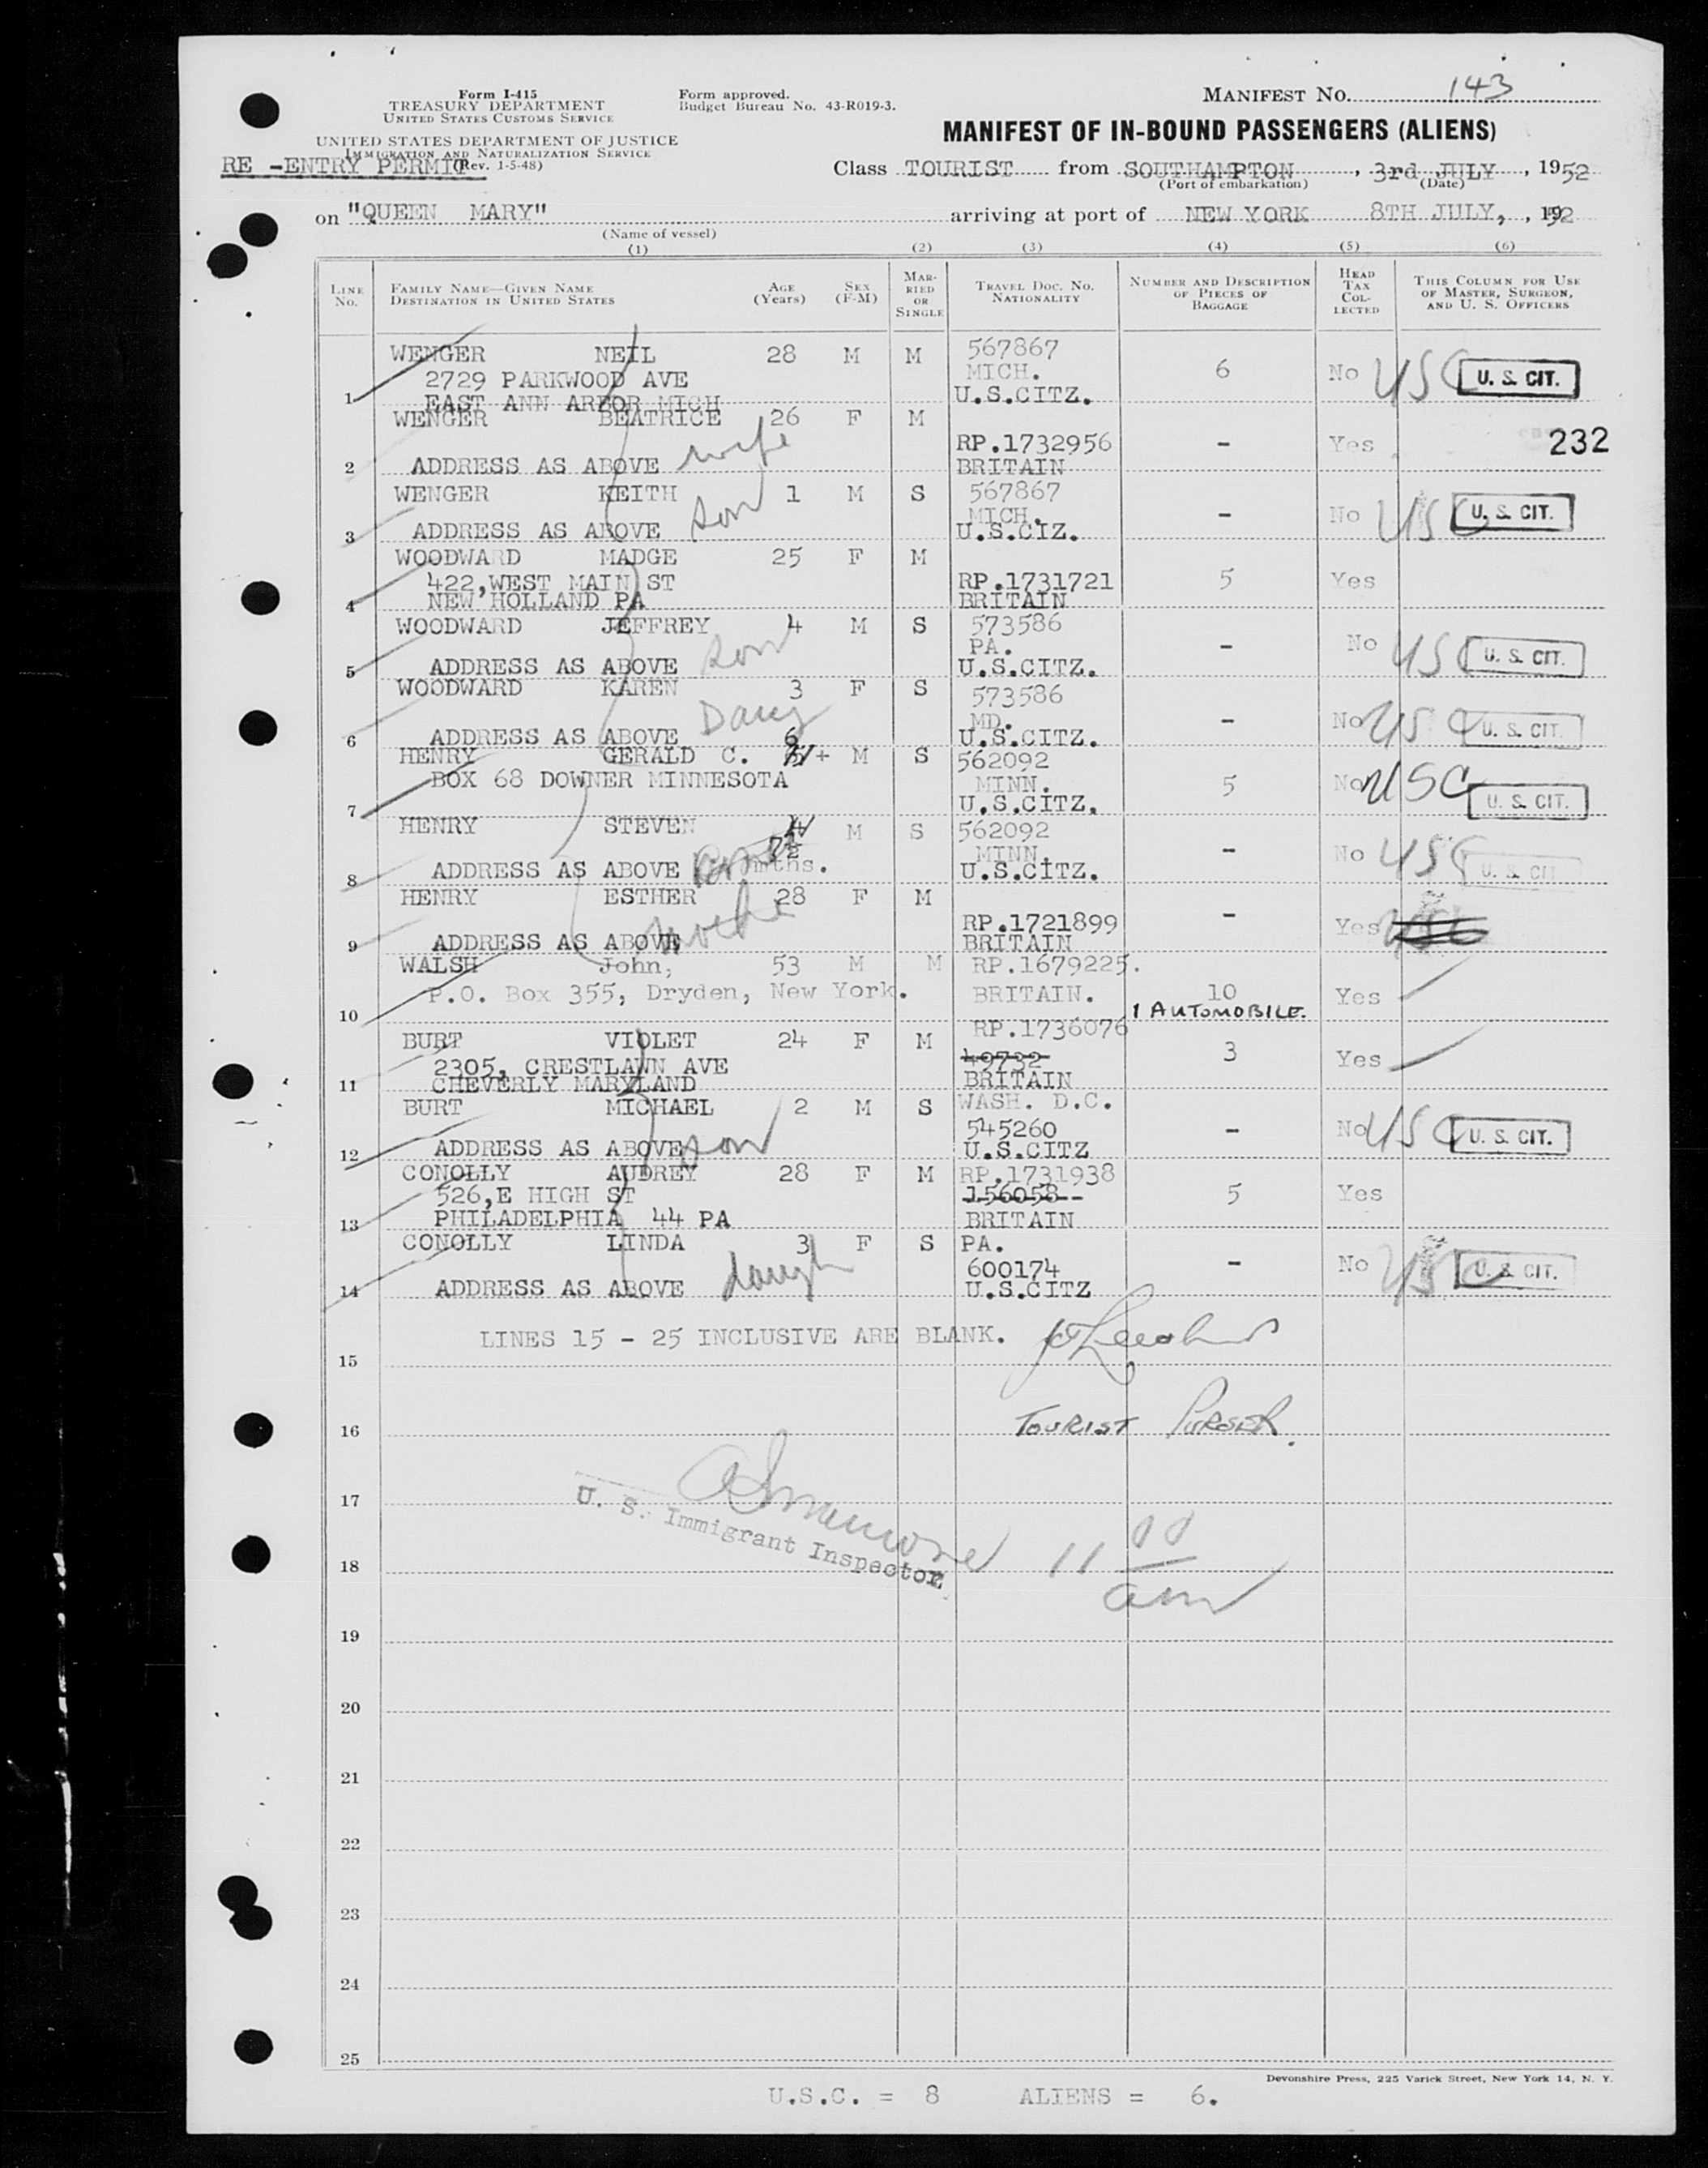 Form I-415
TREASURY DEPARTMENT
UNITED STATES CUSTOMS SERVICE
UNITED STATES DEPARTMENT OF JUSTICE
IMMIGRATION AND NATURALIZATION SERVICE
(Rev. 1-5-48)
RE -ENTRY PERMIT
Form approved.
Budget Bureau No. 43-R019-3.
MANIFEST NO. 143
MANIFEST OF IN-BOUND PASSENGERS (ALIENS)
Class TOURIST from SOUTHAMPTON, 3rd JULY, 1952
(Port of embarkation) (Date)
on "QUEEN MARY" arriving at port of NEW YORK 8TH JULY, , 1952
(Name of vessel)
(1) (2) (3) (4) (5) (6)
LINE NO. FAMILY NAME—GIVEN NAME DESTINATION IN UNITED STATES AGE (Years) SEX (F-M) MARRIED OR SINGLE TRAVEL DOC. NO. NATIONALITY NUMBER AND DESCRIPTION OF PIECES OF BAGGAGE HEAD TAX COLLECTED THIS COLUMN FOR USE OF MASTER, SURGEON, AND U. S. OFFICERS
WENGER NEIL 28 M M 567867
2729 PARKWOOD AVE MICH. 6 No USC U. S. CIT.
1 EAST ANN ARBOR MICH U.S.CITZ.
WENGER BEATRICE 26 F M
wife RP.1732956 - Yes 232
2 ADDRESS AS ABOVE BRITAIN
WENGER KEITH 1 M S 567867
son MICH. - No USC U. S. CIT.
3 ADDRESS AS ABOVE U.S.CIZ.
WOODWARD MADGE 25 F M
422,WEST MAIN ST RP.1731721 5 Yes
4 NEW HOLLAND PA BRITAIN
WOODWARD JEFFREY 4 M S 573586
son PA. - No USC U. S. CIT.
5 ADDRESS AS ABOVE U.S.CITZ.
WOODWARD KAREN 3 F S 573586
Daug MD. - No USC U. S. CIT.
6 ADDRESS AS ABOVE U.S.CITZ.
HENRY GERALD C. 6 M S 562092
BOX 68 DOWNER MINNESOTA MINN. 5 No USC U. S. CIT.
7 U.S.CITZ.
HENRY STEVEN M S 562092
MINN. - No USC U. S. CIT.
8 ADDRESS AS ABOVE mths. U.S.CITZ.
HENRY ESTHER 28 F M
mother RP.1721899 - Yes
9 ADDRESS AS ABOVE BRITAIN
WALSH John, 53 M M RP.1679225.
P.O. Box 355, Dryden, New York. BRITAIN. 10 Yes
10 1 AUTOMOBILE.
BURT VIOLET 24 F M RP.1736076
2305, CRESTLAWN AVE 49732 3 Yes
11 CHEVERLY MARYLAND BRITAIN
BURT MICHAEL 2 M S WASH. D.C.
545260 - No USC U. S. CIT.
12 ADDRESS AS ABOVE son U.S.CITZ
CONOLLY AUDREY 28 F M RP.1731938
526,E HIGH ST 156058 5 Yes
13 PHILADELPHIA 44 PA BRITAIN
CONOLLY LINDA 3 F S PA.
daugh 600174 - No USC U. S. CIT.
14 ADDRESS AS ABOVE U.S.CITZ
LINES 15 - 25 INCLUSIVE ARE BLANK.
15
16 TOURIST PURSER.
17
U. S. Immigrant Inspector 11 00 am
18
19
20
21
22
23
24
25
Devonshire Press, 225 Varick Street, New York 14, N. Y.
U.S.C. = 8 ALIENS = 6.